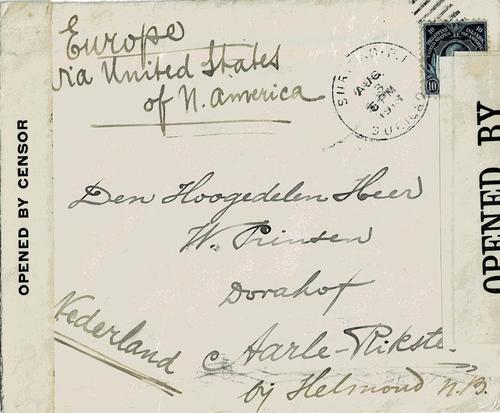 Europe
via United States
of N. America
AUG
5 PM
SURIGAO
10 10
10
OPENED BY CENSOR
OPENED BY
Den Hoogedelen Heer
W. Prinsen
Dorahof
Nederland
Aarle-Rikste
by Helmond N.B.